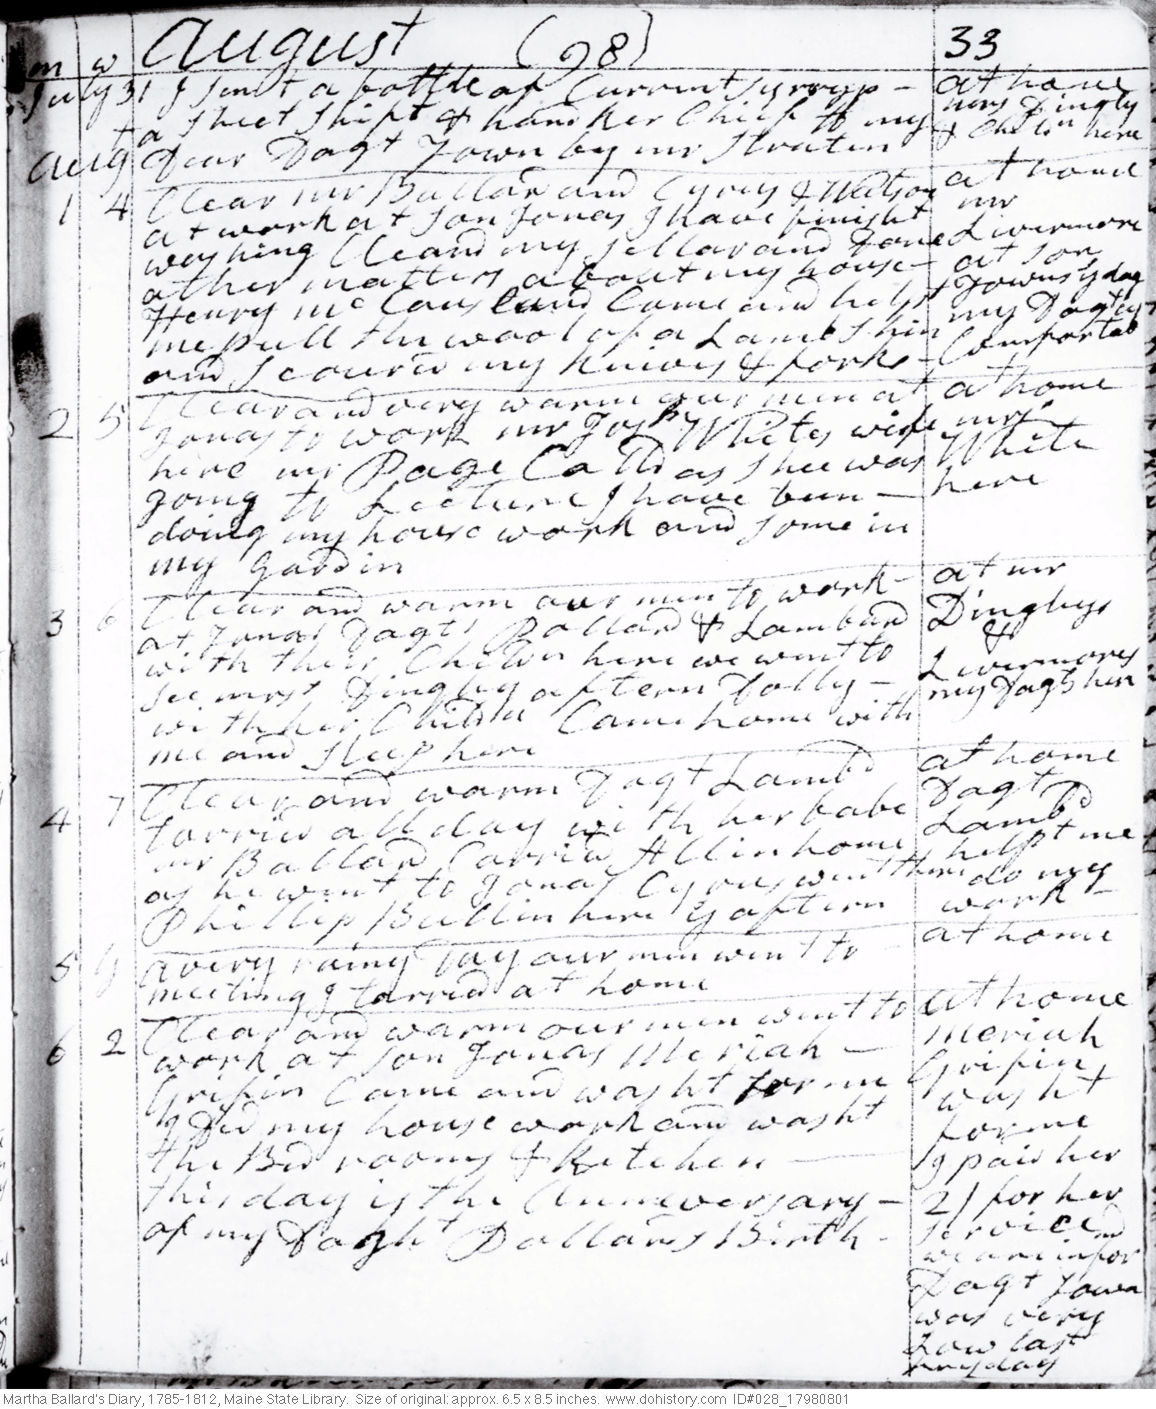 m w August (98) 33
July 31 I sent a bottle of Currint Syrryp -
a Sheet Shift & handkerChief to my
Dear Dagt Town by mr Straten
at home
mrs Dingly
& Childn here
Aug t
1 4 Clear mr Ballard and Cyrus & Wilson
at work at Son Jonas I have finisht
washing Cleand my Sellar and Done
other matters about my house -
Henry mc Causland Came and helpt
me pull the wool of a Lamb Skin
and Scourd my knives & forks -
at home
mr
Livermore
at Son
Towns ys day
my Dagt is
Comfortab
2 5 Clear and very warm our men at
Jonas to work mr Josh Whites wife
here mr Page Calld as shee was
going to Lecture I have been -
doing my house work and some in
my Gardin
at home
mrs
White
here
3 6 Clear and warm our men to work -
at Jonas Dagts Pollard & Lambard
with their Childn here we went to
see mrs Dingley aftern Dolly -
with her Childn Came home with
me and Sleep here
at mr
Dingleys
&
Livermores
my Dagts here
4 7 Clear and warm Dagt Lambd
tarried all day with her babe
mr Ballard Carried Allin home
as he went to Jonas Cyrus went there
Phillip Bullin here ys aftern
at home
Dagt
Lambd
helpt me
do my
work -
5 g a very rainy Day our men went to
meeting I tarried at home
at home
6 2 Clear and warm our men went to
work at Son Jonas Meriah -
Grifin Came and washt for me
I Did my house work and washt
the Bed rooms & Kitchen
this day is the Anniversary -
of my Daght Pollards Birth -
at home
Meriah
Grifin
washt
for me
I paid her
2/ for her
Service
we are infor
Dagt Town
was very
Low last
Martha Ballard's Diary, 1785-1812, Maine State Library. Size of original: approx. 6.5 x 8.5 inches. www.dohistory.com ID#028_17980801